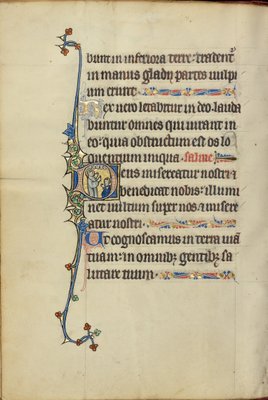 bunt in inferiora terre: tradent
in manus gladij partes vulpi
um erunt.
Rex vero letabitur in deo. lauda
buntur omnes qui iurant in
eo: quia obstructum est os lo
quentium iniqua. salme
Deus misereatur nostri et
benedicat nobis: illumi
net vultum super nos et misere
atur nostri.
Ut cognoscamus in terra viam
tuam: in omnibus gentibus sa
lutare tuum.